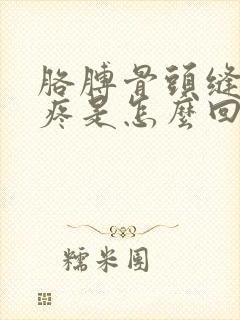 胳膊骨頭縫
疼是怎麼回
糯米團